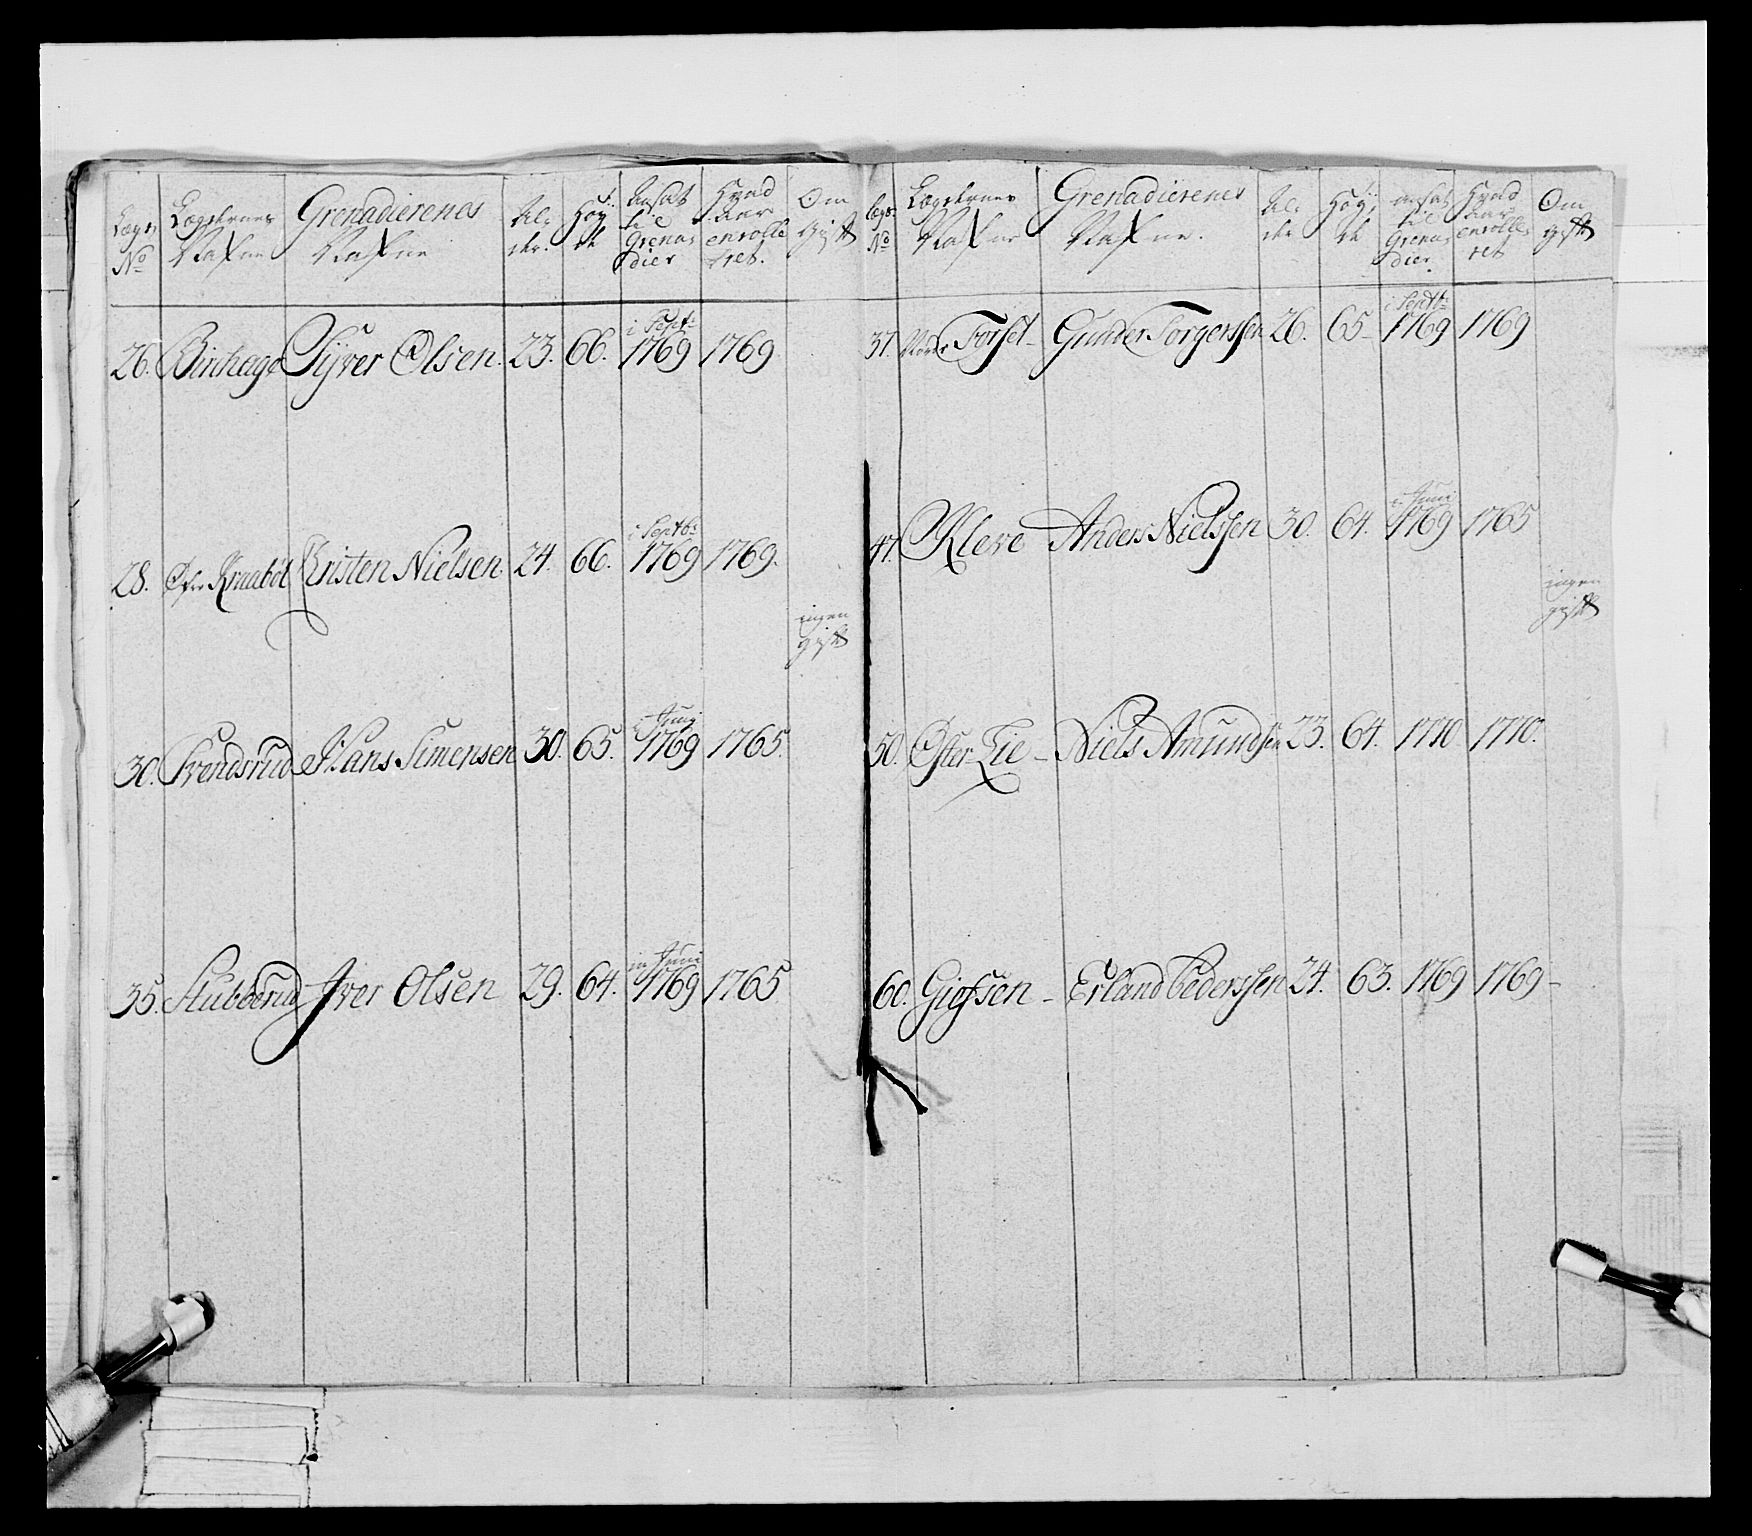 Lægs No | Lægdernes Nafne | Grenadierenes Nafne | Al: der. | Høy: de | Ansat til Grenadier | Hvad aar enrolleret. | Om gift
26. | Birchage | Syver Olsen. | 23. | 66. | i Sept: 1769 | 1769
28. | Øfre Kraabøl | Kristen Nielsen. | 24. | 66. | i Septb: 1769 | 1769.
ingen gift
30. | Svendsrud | Hans Simensen | 30. | 65. | i Junj 1769 | 1765.
35. | Stubberud | Iver Olsen | 29. | 64. | in Juni 1769 | 1765
Lægs No | Lægdernes Nafne | Grenadierenes Nafne. | Al: der | Høy: de | ansat til Grenadier. | Hvad aar enrolleret | Om gift
37. | Nordr Forset - | Gunder Torgerssen | 26. | 65 - | i Septt: 1769 | 1769
47. | Kleve | Anders Nielssen | 30. | 64. | i Juni 1769 | 1765
ingen gift
50. | Øster Lie - | Niels Amundsen | 23. | 64. | 1770 | 1770.
60. | Giefsen - | Erland Pederssen | 24. | 63. | 1769 | 1769 -